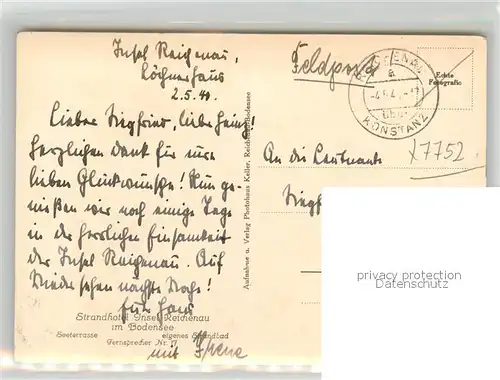 Insel Reichenau,
Löchnerhaus
2.5.40.
Lieber Siegfried, lieber Heinz!
Herzlichen Dank für eure
lieben Glückwünsche! Nun ge-
nießen wir noch einige Tage
in der herrlichen Einsamkeit
der Insel Reichenau. Auf
Wiedersehen nächste Woche!
Euer Hans
mit Irene
Strandhotel Insel Reichenau
im Bodensee
Seeterrasse eigenes Strandbad
Fernsprecher Nr. 17
Aufnahme u. Verlag Photohaus Keller, Reichenau-Bodensee
Feldpost
REICHENAU
a
KONSTANZ
Echte
Fotografie
An die Leutnante
Siegf
x7752
privacy protection
Datenschutz